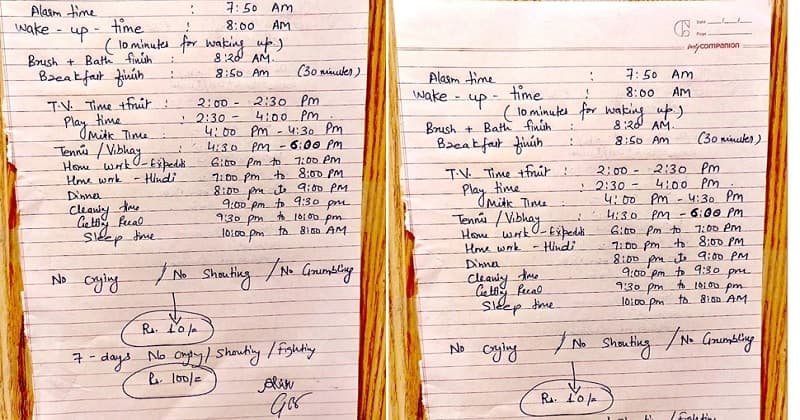 Alarm time : 7:50 AM
Wake - up - time : 8:00 AM
(10 minutes for waking up.)
Brush + Bath finish : 8:20 AM
Breakfast finish : 8:50 AM (30 minutes)
T.V. Time + fruit : 2:00 - 2:30 Pm
Play time : 2:30 - 4:00 Pm.
Milk Time : 4:00 PM - 4:30 PM
Tennis / Vibhay : 4:30 PM - 6:00 PM
Home work - : 6:00 pm to 7:00 Pm
Home work - Hindi : 7:00 pm to 8:00 PM
Dinner : 8:00 pm to 9:00 PM
Cleaning time : 9:00 pm to 9:30 pm
Getting : 9:30 pm to 10:00 pm
Sleep time : 10:00 pm to 8:00 AM
No Crying / No Shouting / No Grumbling
Rs. 10/=
7 - days No crying / shouting / fighting
Rs. 100/=
Date
Page
COMPANION
Alarm time : 7:50 AM
Wake - up - time : 8:00 AM
(10 minutes for waking up.)
Brush + Bath finish : 8:20 AM.
Breakfast finish : 8:50 AM (30 minutes)
T.V. Time + fruit : 2:00 - 2:30 Pm
Play time : 2:30 - 4:00 Pm.
Milk Time : 4:00 PM - 4:30 PM
Tennis / Vibhay : 4:30 PM - 6:00 PM
Home work - : 6:00 pm to 7:00 Pm
Home work - Hindi : 7:00 pm to 8:00 PM
Dinner : 8:00 pm to 9:00 PM
Cleaning time : 9:00 pm to 9:30 pm
Getting : 9:30 pm to 10:00 pm
Sleep time : 10:00 pm to 8:00 AM
No Crying / No Shouting / No Grumbling
Rs. 10/=